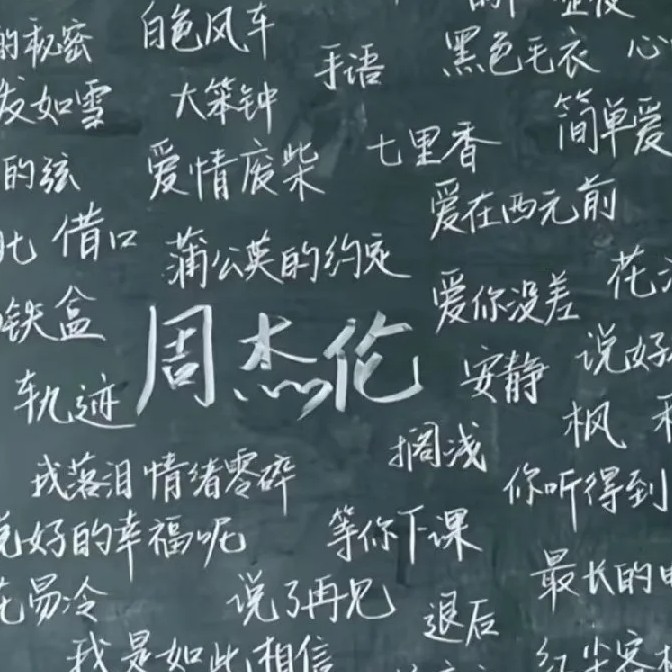 的秘密
白色风车
手语
黑色毛衣
心
发如雪
大笨钟
七里香
简单爱
的弦
爱情废柴
爱在西元前
借口
蒲公英的约定
花
铁盒
周杰伦
爱你没差
说好
轨迹
安静
枫
搁浅
我落泪情绪零碎
你听得到
说好的幸福呢
等你下课
最长的电
花易冷
说了再见
退后
我是如此相信
红尘客